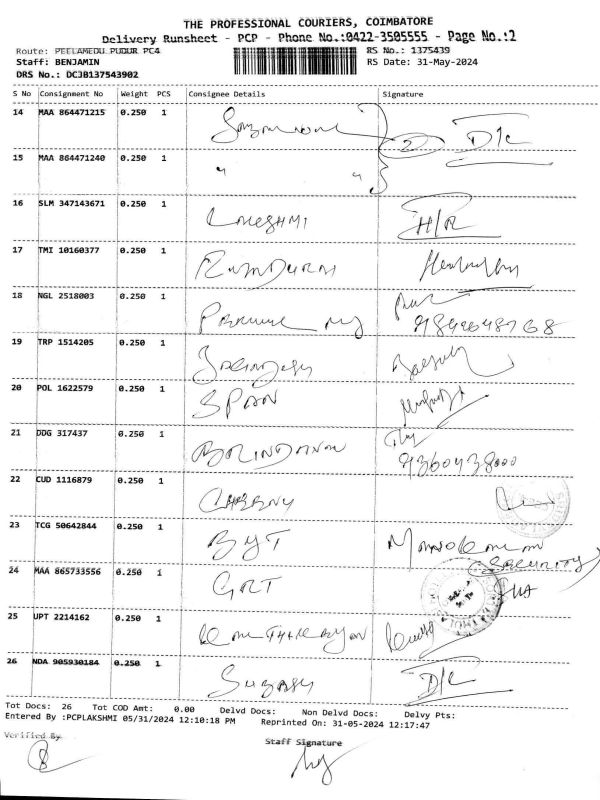 THE PROFESSIONAL COURIERS, COIMBATORE
Delivery Runsheet - PCP - Phone No.:0422-3505555 - Page No.:2
Route: PEELAMEDU PUDUR PC4 RS No.: 1375439
Staff: BENJAMIN RS Date: 31-May-2024
DRS No.: DCJB137543902
S No Consignment No Weight PCS Consignee Details Signature
14 MAA 864471215 0.250 1 2 D/C
15 MAA 864471240 0.250 1 " "
16 SLM 347143671 0.250 1 H/R
17 TMI 10160377 0.250 1
18 NGL 2518003 0.250 1
19 TRP 1514205 0.250 1
20 POL 1622579 0.250 1 SPAN
21 DDG 317437 0.250 1 9360438000
22 CUD 1116879 0.250 1
23 TCG 50642844 0.250 1 BYT
SECURITY
24 MAA 865733556 0.250 1 GRT
25 UPT 2214162 0.250 1
26 NDA 905930184 0.250 1 SUBASH D/C
Tot Docs: 26 Tot COD Amt: 0.00 Delvd Docs: Non Delvd Docs: Delvy Pts:
Entered By :PCPLAKSHMI 05/31/2024 12:10:18 PM Reprinted On: 31-05-2024 12:17:47
Verified By Staff Signature